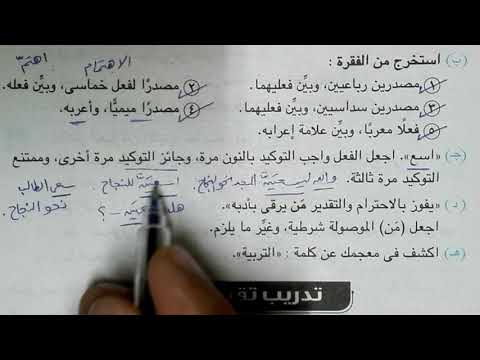 الاهتمام اهتمّ
(ب) استخرج من الفقرة :
١ مصدرين رباعيين، وبيِّن فعليهما. ٢ مصدرًا لفعل خماسى، وبيِّن فعله.
٣ مصدرين سداسيين، وبيِّن فعليهما. ٤ مصدرًا ميميًّا، وأعربه.
٥ فعلًا معربًا، وبيِّن علامة إعرابه.
(جـ) «اسع». اجعل الفعل واجب التوكيد بالنون مرة، وجائز التوكيد مرة أخرى، وممتنع
التوكيد مرة ثالثة. والله ليسعينَّ للنجاح. سعى الطالب
نحو النجاح
(د) «يفوز بالاحترام والتقدير مَن يرقى بأدبه». هل ؟
اجعل (مَن) الموصولة شرطية، وغيِّر ما يلزم.
(هـ) اكشف فى معجمك عن كلمة : «التربية».
تدريب